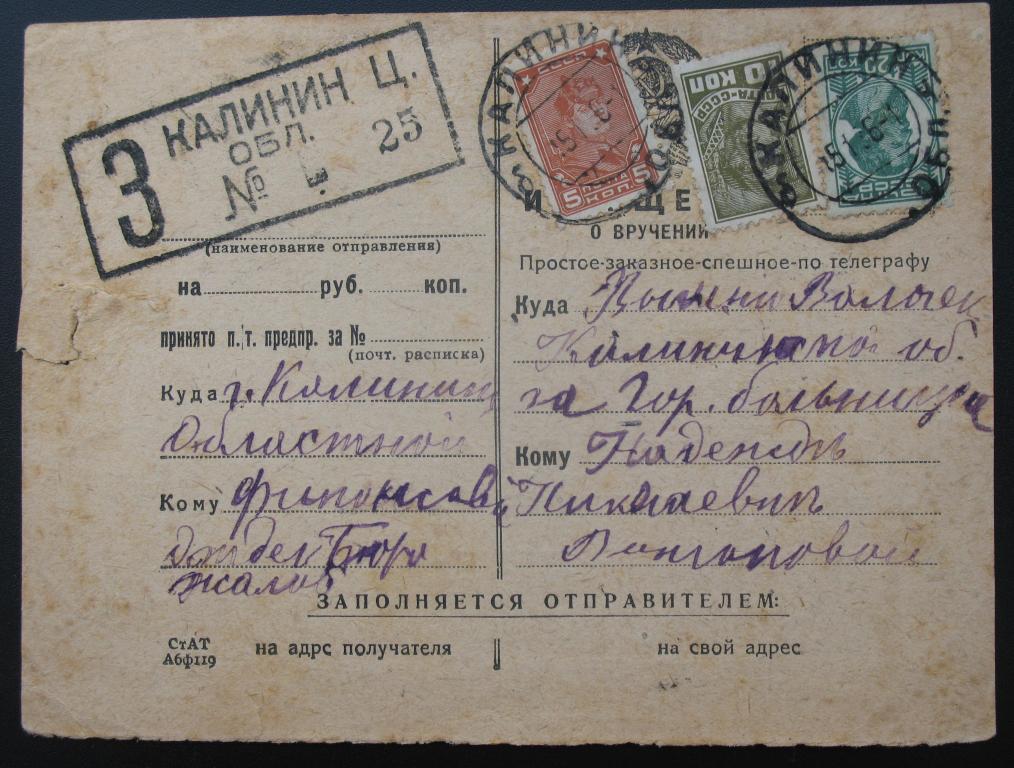 З
КАЛИНИН Ц.
ОБЛ.
№ 25
КАЛИНИН
ОБЛ.
СССР
5 ПОЧТА 5
КОП
10 КОП
ПОЧТА-СССР
КАЛИНИН
ОБЛ.
О ВРУЧЕНИИ
(наименование отправления)
на руб. коп.
принято п.т. предпр. за №
(почт. расписка)
Куда г. Калинин
Областной
Кому Финансовый
отдел Бюро
жалоб
Простое-заказное-спешное-по телеграфу
Куда Вышний Волочек
Калининской об.
Гор. больница
Кому Надежде
Николаевне
ЗАПОЛНЯЕТСЯ ОТПРАВИТЕЛЕМ:
СтАТ
Абф119
на адрс получателя
на свой адрес